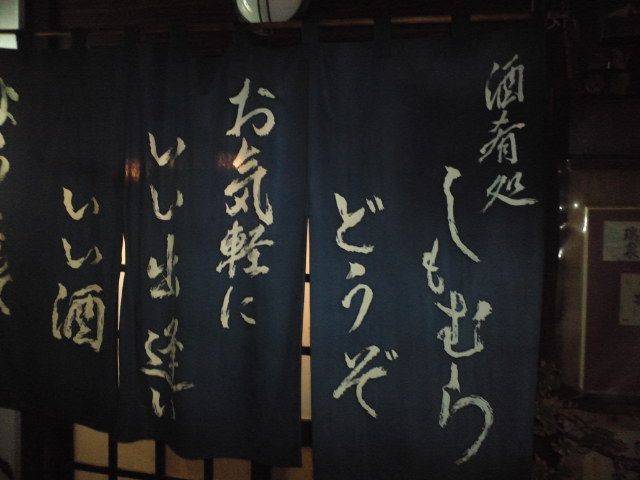 酒肴処
しもむら
どうぞ
お気軽に
いい出逢い
いい酒